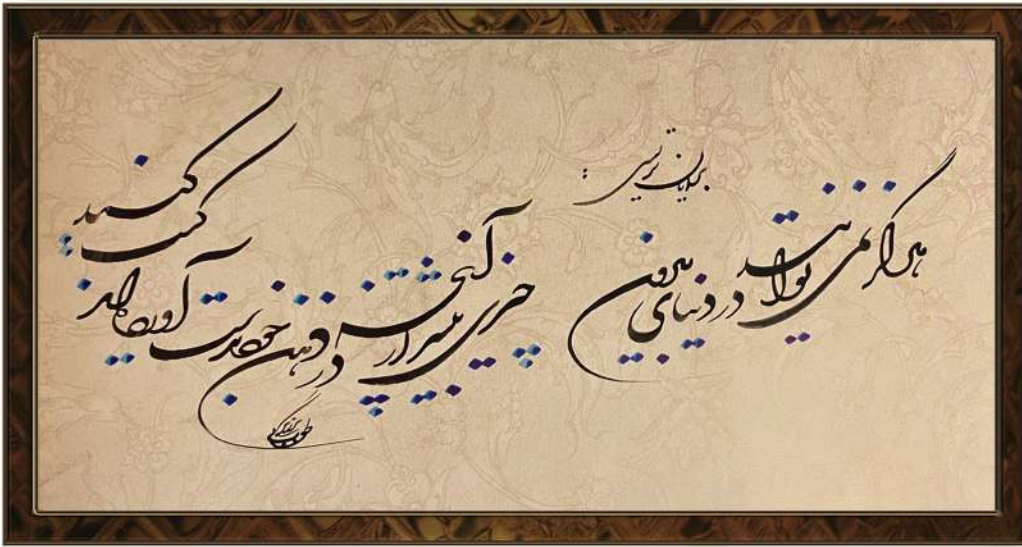 برایان تریسی:
هرگز نمی توانید در دنیای بیرون
چیزی بیشتر از آنچه در ذهن خود بدست آورده‌اید،
کسب کنید